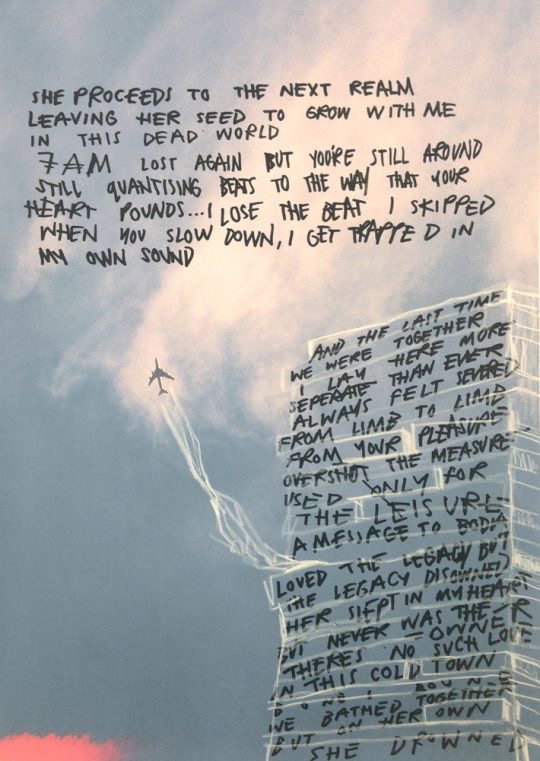 SHE PROCEEDS TO THE NEXT REALM
LEAVING HER SEED TO GROW WITH ME
IN THIS DEAD WORLD
7AM LOST AGAIN BUT YOU'RE STILL AROUND
STILL QUANTISING BEATS TO THE WAY THAT YOUR
HEART POUNDS... I LOSE THE BEAT I SKIPPED
WHEN YOU SLOW DOWN, I GET TRAPPED IN
MY OWN SOUND
AND THE LAST TIME
WE WERE TOGETHER
I LAY HERE MORE
SEPERATE THAN EVER
ALWAYS FELT SEVERED
FROM LIMB TO LIMB
FROM YOUR PLEASURE
OVERSHOT THE MEASURE
USED ONLY FOR
THE LEISURE
A MESSAGE TO
LOVED THE LEGACY BUT
THE LEGACY DISOWNED
HER SLEPT IN MY HEART
BUT NEVER WAS THE
OWNER
THERES NO SUCH LOVE
IN THIS COLD TOWN
WE BATHED TOGETHER
BUT ON HER OWN
SHE DROWNED